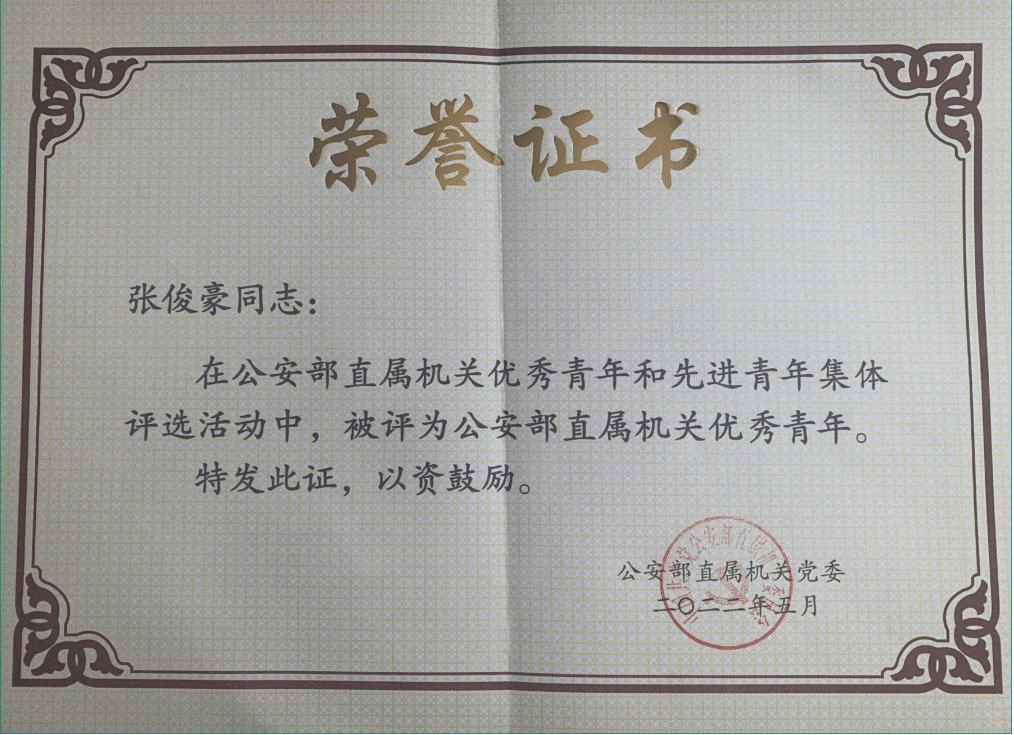 荣誉证书
张俊豪同志：
在公安部直属机关优秀青年和先进青年集体
评选活动中，被评为公安部直属机关优秀青年。
特发此证，以资鼓励。
公安部直属机关党委
二〇二二年五月